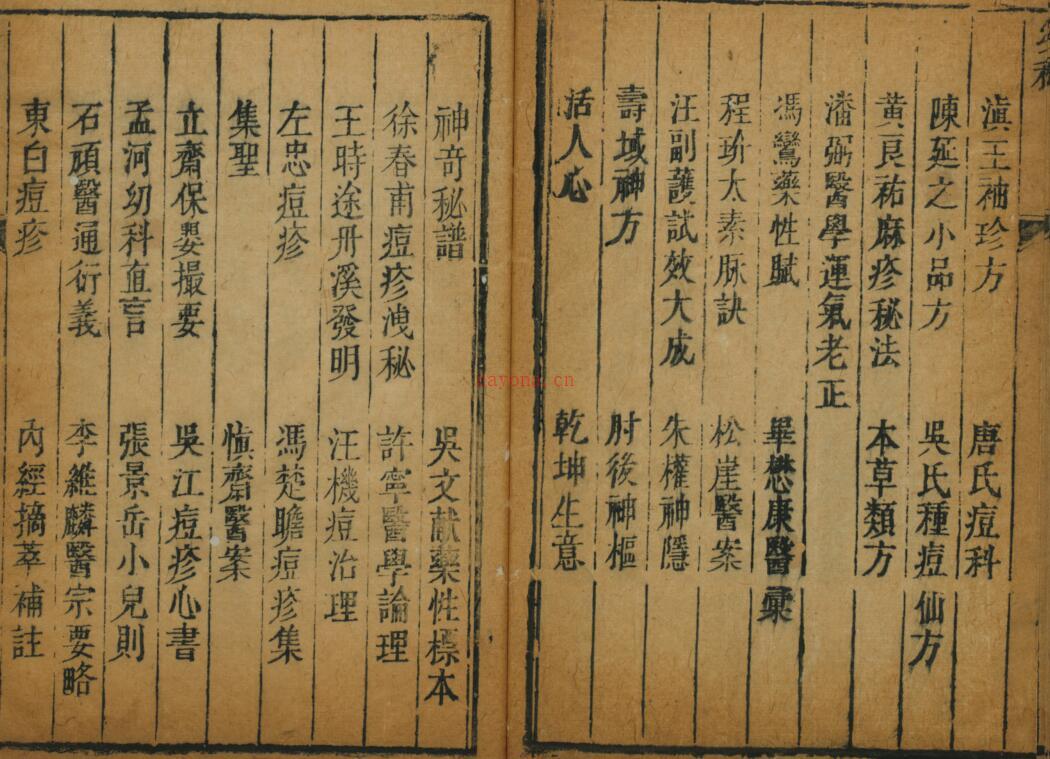 滇王袖珍方　唐氏痘科
陳延之小品方　吳氏種痘仙方
黄良祐麻疹秘法　本草類方
潘弼醫學運氣老正
馮鸞藥性賦　畢懋康醫彙
程玠太素脉訣　松崖醫案
汪副護試效大成　朱權神隱
壽域神方　肘後神樞
活人心　乾坤生意
神奇秘譜　吳文献藥性標本
徐春甫痘疹洩秘　許寧醫學論理
王時途丹溪發明　汪機痘治理
左忠痘疹　馮楚瞻痘疹集
集聖　慎齋醫案
立齋保嬰撮要　吳江痘疹心書
孟河幼科直言　張景岳小兒則
石頑醫通衍義　李維麟醫宗要略
東白痘疹　內經摘萃補註
kayona.cn